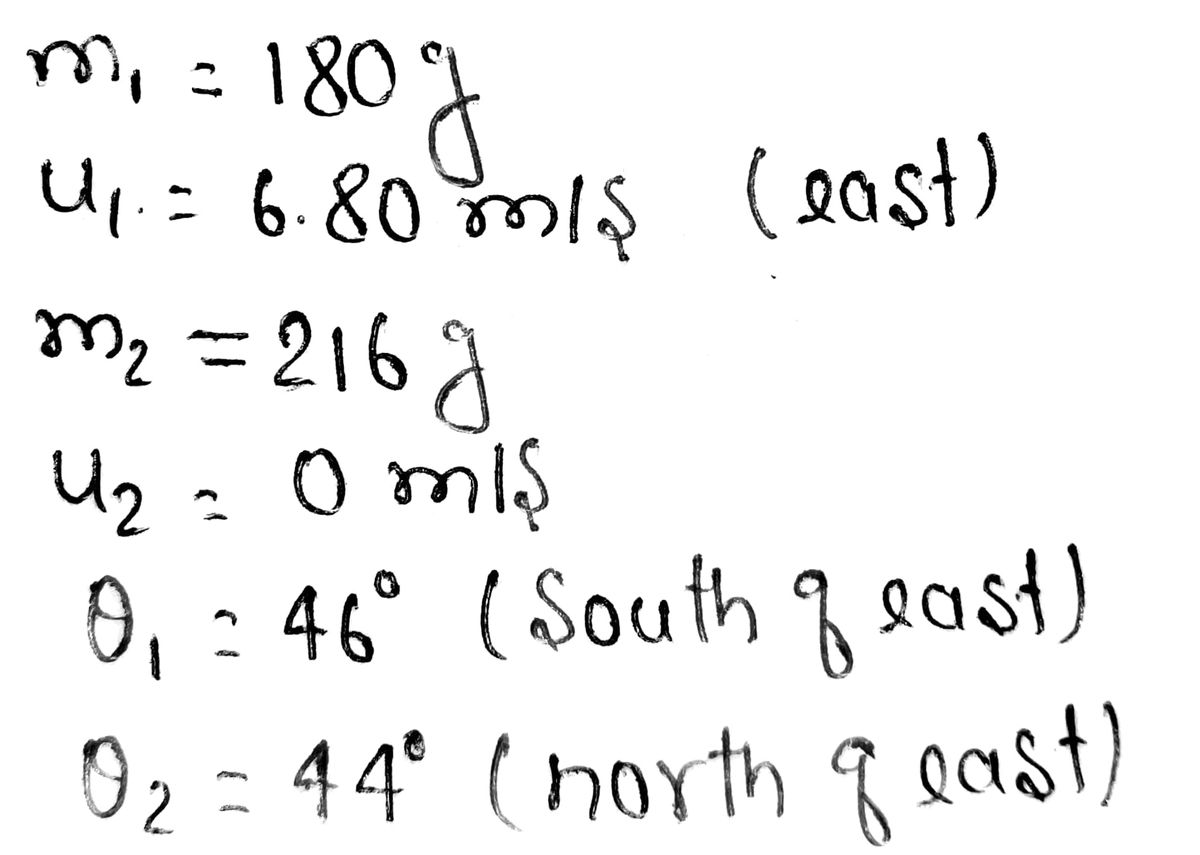 m₁ = 180 g
u₁ = 6.80 m/s (east)
m₂ = 216 g
u₂ = 0 m/s
θ₁ = 46° (South of east)
θ₂ = 44° (north of east)